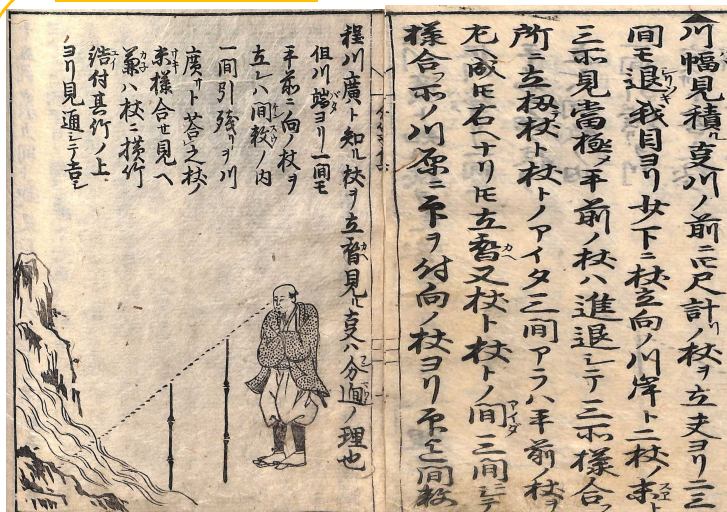 川幅見積ル事川ノ前ニ六尺計ノ杖ヲ立夫ヨリ二三
間モ退我目ヨリ少下ニ杖立向ノ川岸ト二杖ノ末ト
三所見當極メ手前ノ杖ハ進退シテ三所様合
所ニ立扨杖ト杖トノアイタ三間アラハ手前ノ杖ヲ
左ヘ成トモ右ヘナリトモ立替又杖ト杖トノ間三間ニシテ
様合所ノ川原ニ印ヲ付向ノ杖ヨリ印迄間数
程川廣ト知ル杖ヲ立替見ル事ハ分廻ノ理也
但川端ヨリ一間モ
手前ニ向ノ杖ヲ
立レハ間数ノ内
一間引残リヲ川
廣サト答之杖ノ
末様合せ見ヘ
兼ハ杖ニ横竹
結付其竹ノ上
ヨリ見通シテ吉シ